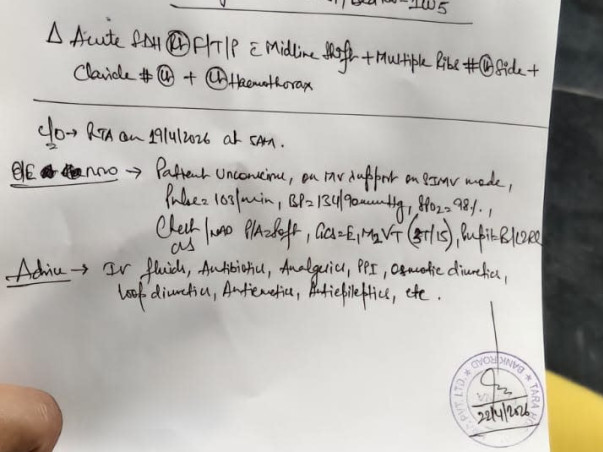 Bed no - IW5
Δ Acute SDH (Lt) F/T/P c̄ Midline Shift + Multiple Ribs # (Lt) Side +
Clavicle # (Lt) + (Lt) Haemothorax
c/o → RTA on 19/4/2026 at 5AM.
O/E → Patient Unconscious, on MV support on SIMV mode,
Pulse = 103/min, BP = 134/90mmHg, SPO2 = 98%.,
Chest / NAD P/A = Soft, GCS = E1M2VT (3T/15), Pupil = B/L2RL
CVS
Advice → IV fluids, Antibiotics, Analgesics, PPI, Osmotic diuretics,
loop diuretics, Antiemetics, Antiepileptics, etc.
PVT. LTD. ★ BANK ROAD ★ TARA
22/4/2026